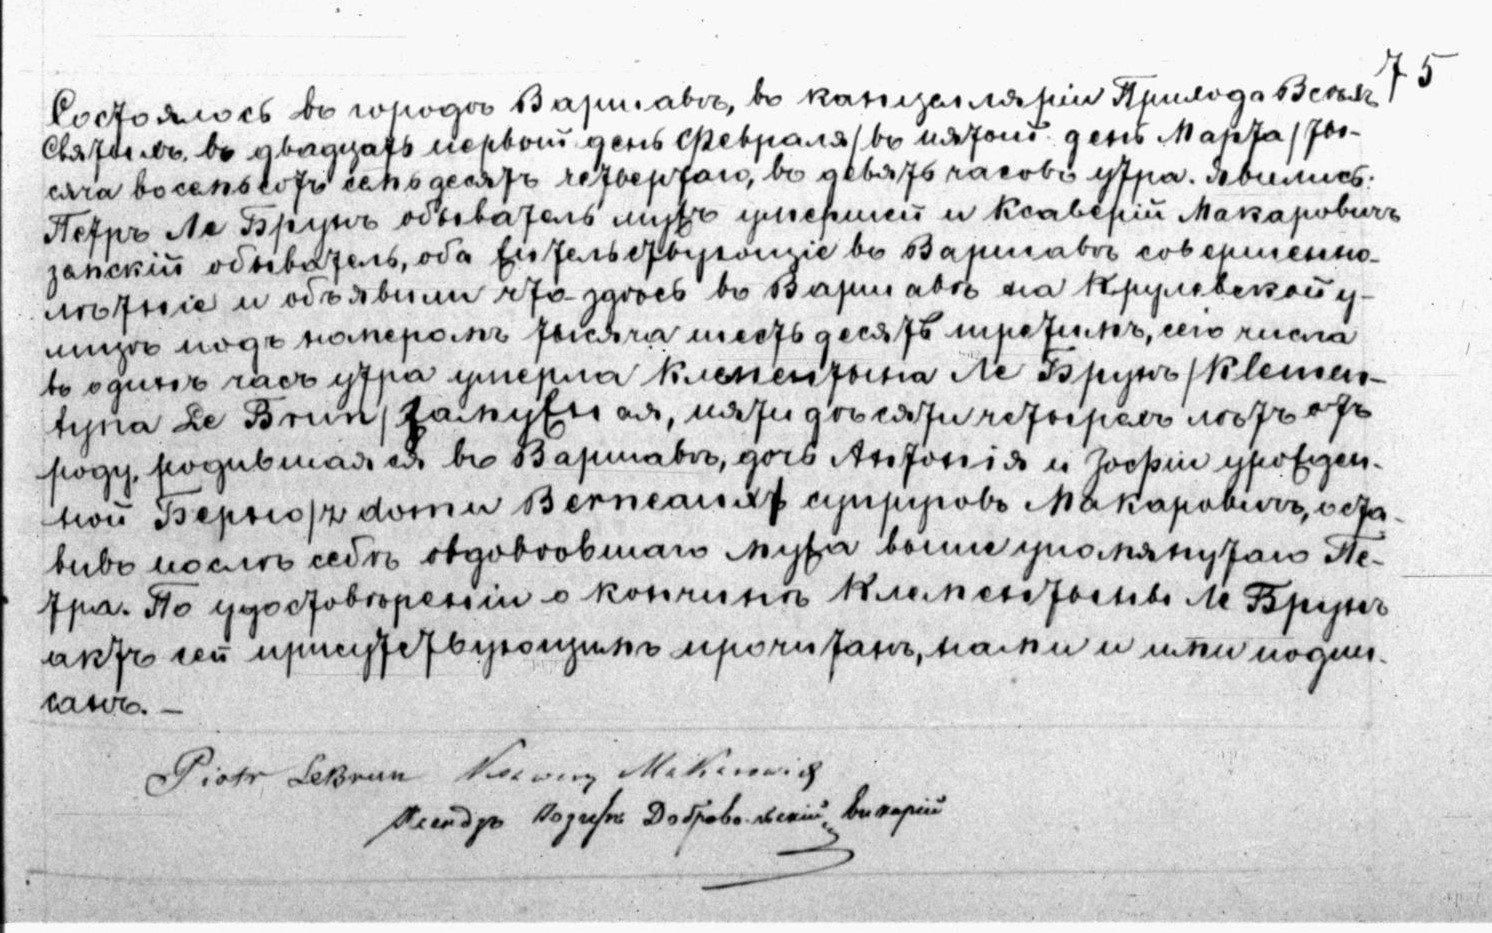 75
Состоялось въ городѣ Варшавѣ, въ канцеляріи Прихода Всѣхъ
Святыхъ, въ двадцать первый день Февраля / въ пятый день Марта / ты-
сяча восемьсотъ семьдесятъ четвертаго, въ девять часовъ утра. Явились:
Петръ Ле Брунъ обыватель мужъ умершей и Ксаверій Макаровичъ
земскій обыватель, оба жительствующіе въ Варшавѣ совершенно-
лѣтніе и объявили что здѣсь въ Варшавѣ на Крулевской у-
лицѣ подъ номеромъ тысяча шестьдесятъ третимъ, сего числа
въ одинъ часъ утра умерла Клементына Ле Брунъ / Klemen-
tyna Le Brun / замужная, пятидѣсяти четырехъ лѣтъ отъ
роду, родившаяся въ Варшавѣ, дочь Антонія и Зофіи урожден-
ной Бернo / z domu Berneaux супруговъ Макаровичъ, оста-
вивъ послѣ себѣ овдовѣвшаго мужа выше упомянутаго Пе-
тра. По удостовѣреніи о кончинѣ Клементыны Ле Брунъ
актъ сей присутствующимъ прочитанъ, нами и ими подпи-
санъ. —
Piotr LeBrun Ksawery Makarowicz
Ксендзъ Іозефъ Добровольскій, викарій